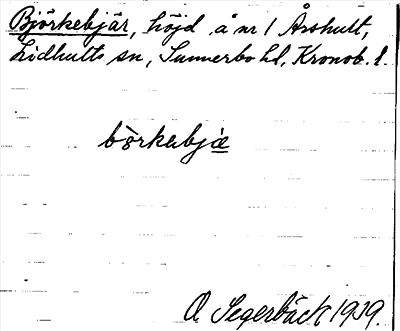 Björkebjär, höjd å nr 1 Årshult,
Lidhults sn, Sunnerbo hd, Kronob. l.
börkebjæ
O. Segerbäck 1939.